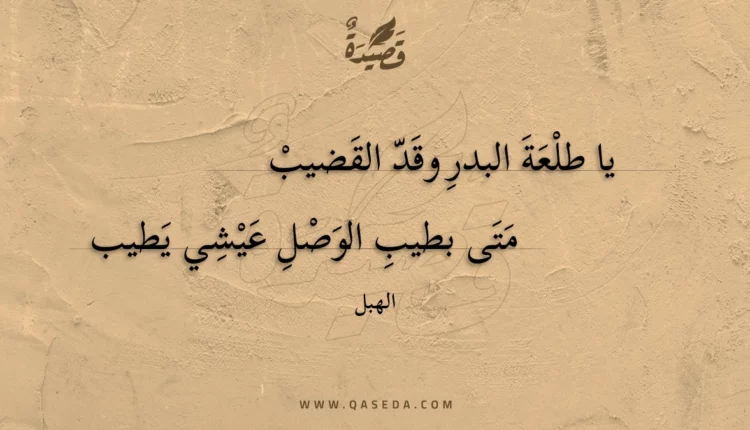 قَصِيْدَةٌ
يا طلْعَةَ البدرِ وقَدّ القَضيبْ
مَتَى بطيبِ الوَصْلِ عَيْشِي يَطيب
الهبل
WWW.QASEDA.COM